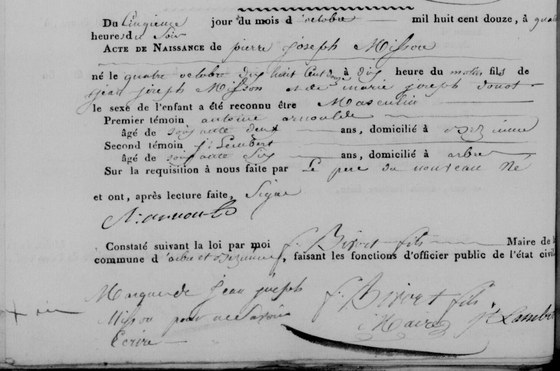 Du Cinquieme jour du mois d'octobre mil huit cent douze, à quatre
heures du Soir
Acte de Naissance de pierre Joseph Misson
né le quatre octobre dix huit Cent douze à dix heure du matin fils de
Jean Joseph Misson et de marie joseph
le sexe de l'enfant a été reconnu être Masculin
Premier témoin antoine arnould
âgé de Soixante deux ans, domicilié à
Second témoin J. Lambert
âgé de Soixante Six ans, domicilié à arbre
Sur la requisition à nous faite par Le pere du nouveau Né
et ont, après lecture faite, Signé
A: arnould
Constaté suivant la loi par moi f. Bivort fils Maire de la
commune d'arbre, faisant les fonctions d'officier public de l'état civil
Marque de Jean joseph
Misson pour ne savoir
Ecrire
f. Bivort fils
Maire
J. Lambert